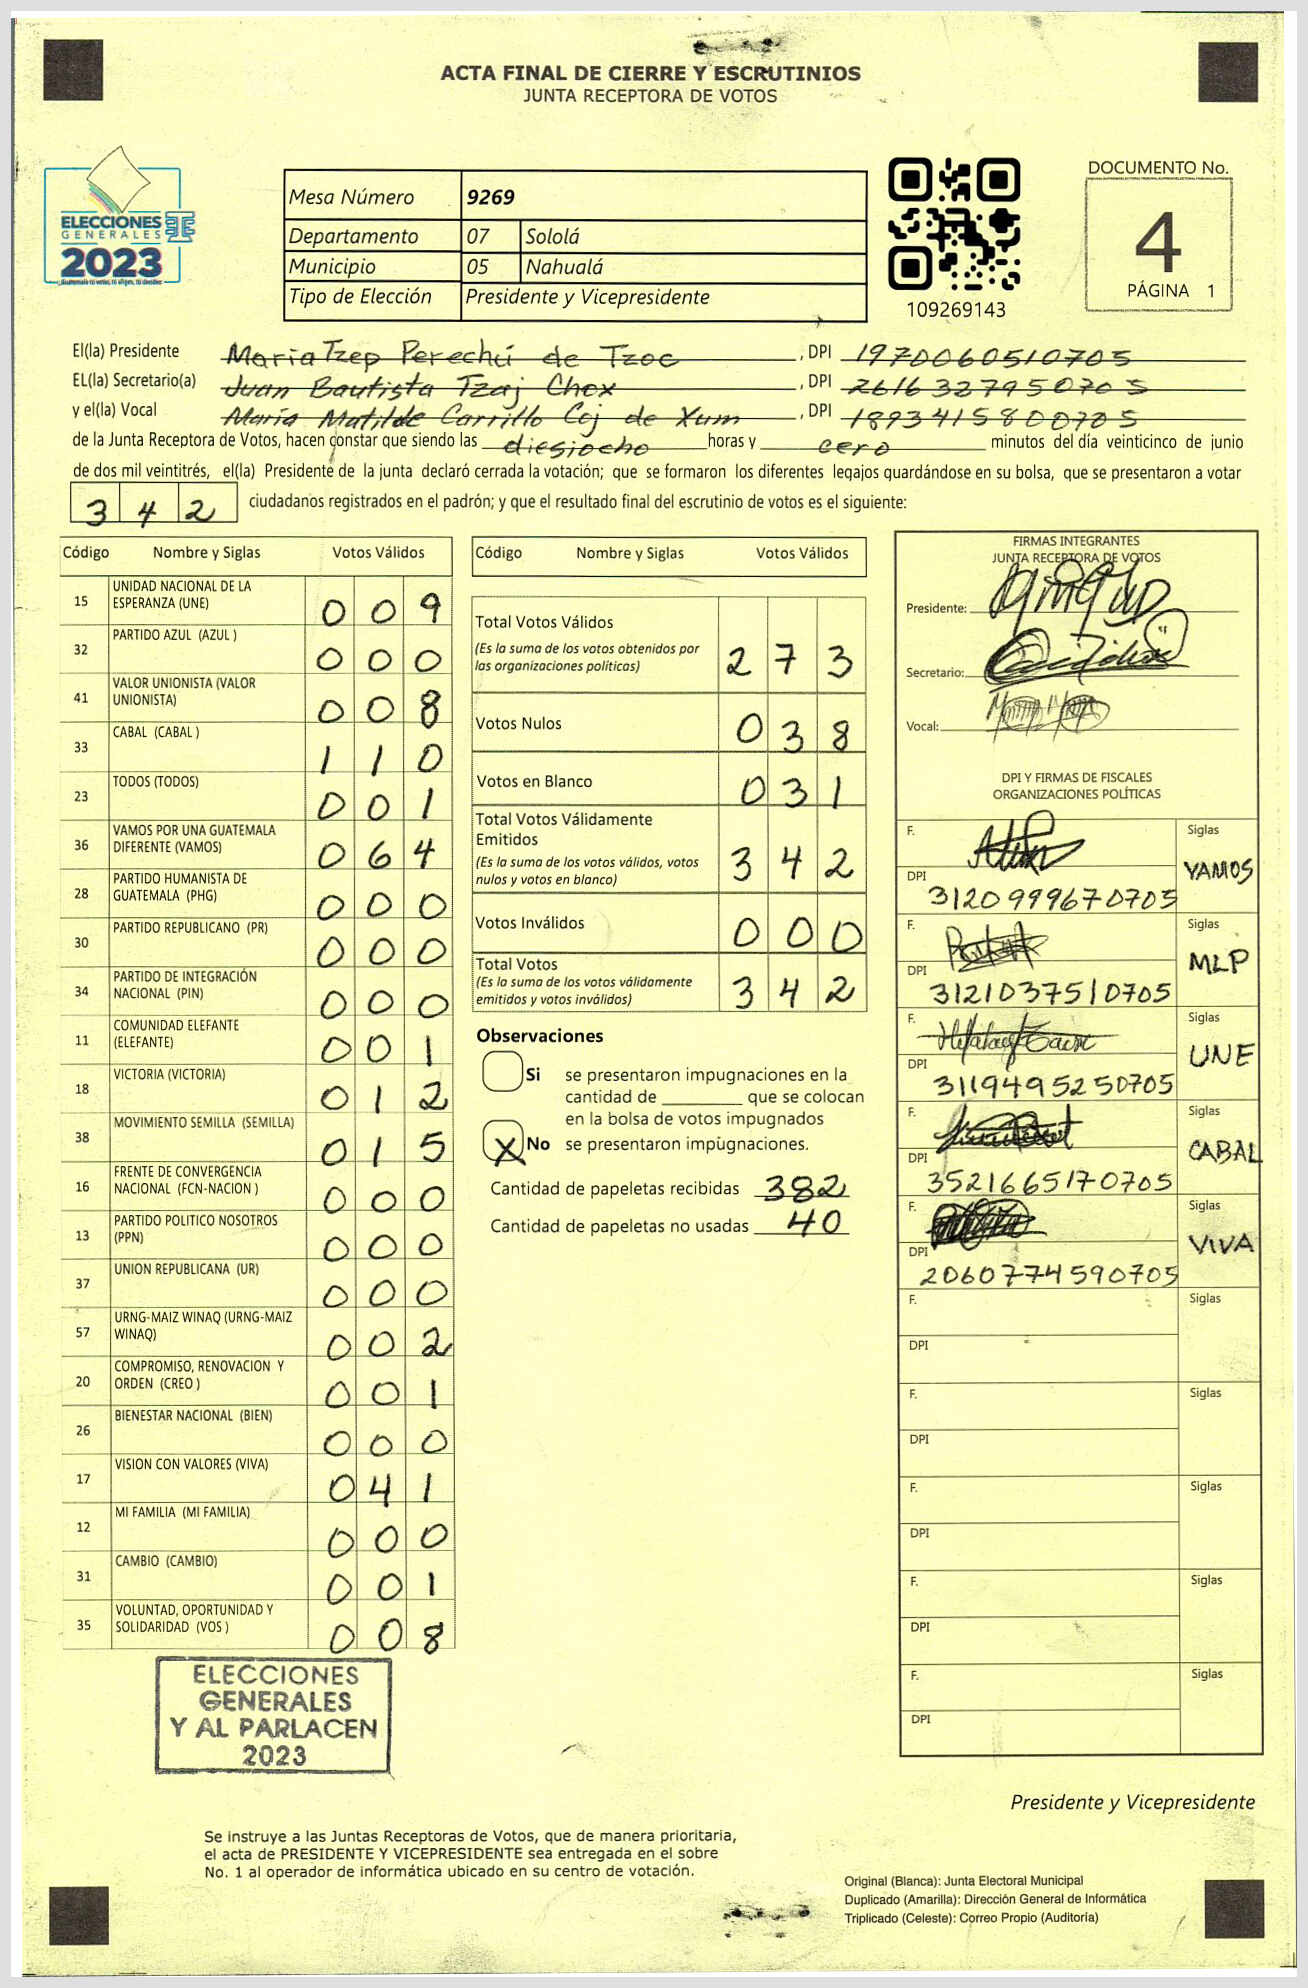 ACTA FINAL DE CIERRE Y ESCRUTINIOS
JUNTA RECEPTORA DE VOTOS
ELECCIONES
GENERALES
2023
Mesa Número 9269
Departamento 07 Sololá
Municipio 05 Nahualá
Tipo de Elección Presidente y Vicepresidente
109269143
DOCUMENTO No.
4
PÁGINA 1
El(la) Presidente María Tzep Perechú de Tzoc, DPI 1970060510705
EL(la) Secretario(a) Juan Bautista Tzaj Chox, DPI 2616327950705
y el(la) Vocal María Matilde Carrillo Coj de Xum, DPI 1893415800705
de la Junta Receptora de Votos, hacen constar que siendo las diesiocho horas y cero minutos del día veinticinco de junio
de dos mil veintitrés, el(la) Presidente de la junta declaró cerrada la votación; que se formaron los diferentes legajos guardándose en su bolsa, que se presentaron a votar
342 ciudadanos registrados en el padrón; y que el resultado final del escrutinio de votos es el siguiente:
Código Nombre y Siglas Votos Válidos
15 UNIDAD NACIONAL DE LA ESPERANZA (UNE) 009
32 PARTIDO AZUL (AZUL ) 000
41 VALOR UNIONISTA (VALOR UNIONISTA) 008
33 CABAL (CABAL ) 110
23 TODOS (TODOS) 001
36 VAMOS POR UNA GUATEMALA DIFERENTE (VAMOS) 064
28 PARTIDO HUMANISTA DE GUATEMALA (PHG) 000
30 PARTIDO REPUBLICANO (PR) 000
34 PARTIDO DE INTEGRACIÓN NACIONAL (PIN) 000
11 COMUNIDAD ELEFANTE (ELEFANTE) 001
18 VICTORIA (VICTORIA) 012
38 MOVIMIENTO SEMILLA (SEMILLA) 015
16 FRENTE DE CONVERGENCIA NACIONAL (FCN-NACION ) 000
13 PARTIDO POLITICO NOSOTROS (PPN) 000
37 UNION REPUBLICANA (UR) 000
57 URNG-MAIZ WINAQ (URNG-MAIZ WINAQ) 002
20 COMPROMISO, RENOVACION Y ORDEN (CREO ) 001
26 BIENESTAR NACIONAL (BIEN) 000
17 VISION CON VALORES (VIVA) 041
12 MI FAMILIA (MI FAMILIA) 000
31 CAMBIO (CAMBIO) 001
35 VOLUNTAD, OPORTUNIDAD Y SOLIDARIDAD (VOS ) 008
ELECCIONES
GENERALES
Y AL PARLACEN
2023
Código Nombre y Siglas Votos Válidos
Total Votos Válidos 273
(Es la suma de los votos obtenidos por
las organizaciones políticas)
Votos Nulos 038
Votos en Blanco 031
Total Votos Válidamente
Emitidos 342
(Es la suma de los votos válidos, votos
nulos y votos en blanco)
Votos Inválidos 000
Total Votos 342
(Es la suma de los votos válidamente
emitidos y votos inválidos)
Observaciones
Si se presentaron impugnaciones en la
cantidad de ________ que se colocan
en la bolsa de votos impugnados
X No se presentaron impugnaciones.
Cantidad de papeletas recibidas 382
Cantidad de papeletas no usadas 40
FIRMAS INTEGRANTES
JUNTA RECEPTORA DE VOTOS
Presidente:
Secretario:
Vocal:
DPI Y FIRMAS DE FISCALES
ORGANIZACIONES POLÍTICAS
F. Siglas VAMOS
DPI 3120999670705
F. Siglas MLP
DPI 3121037510705
F. Siglas UNE
DPI 3119495250705
F. Siglas CABAL
DPI 3521665170705
F. Siglas VIVA
DPI 2060774590705
F. Siglas
DPI
F. Siglas
DPI
F. Siglas
DPI
F. Siglas
DPI
F. Siglas
DPI
Presidente y Vicepresidente
Se instruye a las Juntas Receptoras de Votos, que de manera prioritaria,
el acta de PRESIDENTE Y VICEPRESIDENTE sea entregada en el sobre
No. 1 al operador de informática ubicado en su centro de votación.
Original (Blanca): Junta Electoral Municipal
Duplicado (Amarilla): Dirección General de Informática
Triplicado (Celeste): Correo Propio (Auditoría)